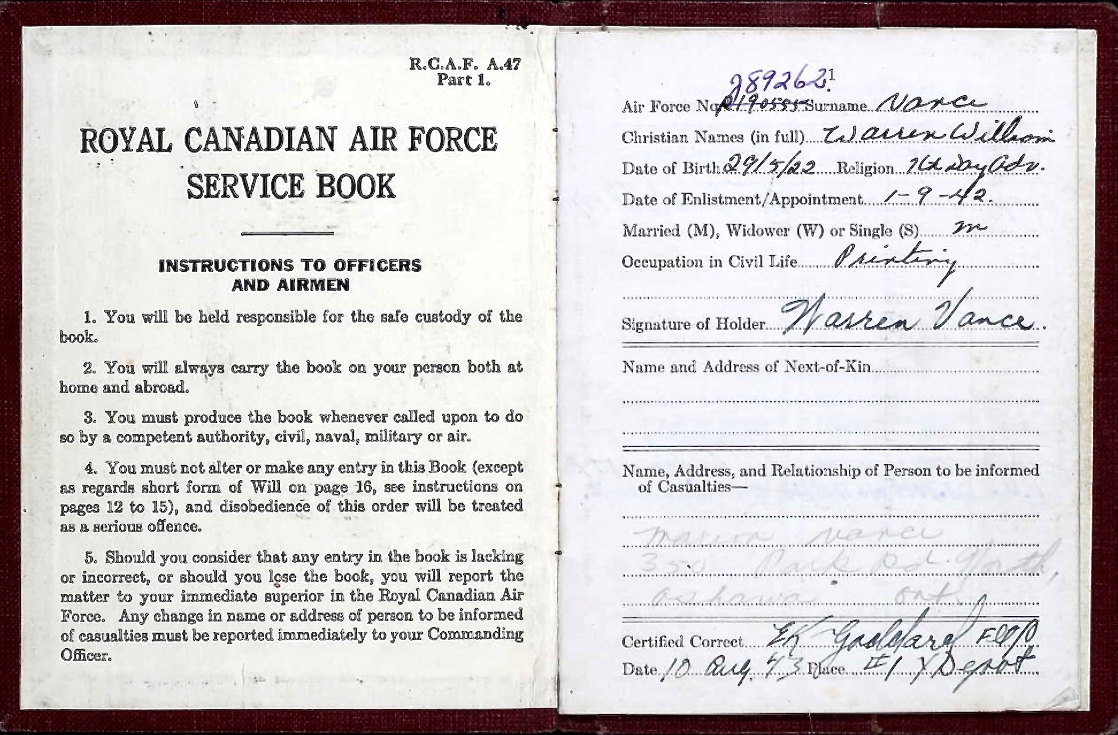 R.C.A.F. A.47
Part 1.
ROYAL CANADIAN AIR FORCE
SERVICE BOOK
INSTRUCTIONS TO OFFICERS
AND AIRMEN
1. You will be held responsible for the safe custody of the
book.
2. You will always carry the book on your person both at
home and abroad.
3. You must produce the book whenever called upon to do
so by a competent authority, civil, naval, military or air.
4. You must not alter or make any entry in this Book (except
as regards short form of Will on page 16, see instructions on
pages 12 to 15), and disobedience of this order will be treated
as a serious offence.
5. Should you consider that any entry in the book is lacking
or incorrect, or should you lose the book, you will report the
matter to your immediate superior in the Royal Canadian Air
Force. Any change in name or address of person to be informed
of casualties must be reported immediately to your Commanding
Officer.
1
289262
Air Force No. R190555 Surname Vance
Christian Names (in full) Warren William
Date of Birth 29/5/22 Religion 7th Day Adv.
Date of Enlistment/Appointment 1-9-42.
Married (M), Widower (W) or Single (S) M
Occupation in Civil Life Printing
Signature of Holder Warren Vance.
Name and Address of Next-of-Kin
Name, Address, and Relationship of Person to be informed
of Casualties—
Marion Vance
350 Park Rd. North,
Oshawa Ont.
Certified Correct EK Goddard F/O
Date 10 Aug. 43 Place #1 Y Depot